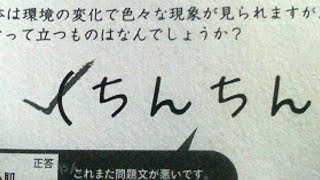 は環境の変化で色々な現象が見られますが
って立つものはなんでしょうか?
ちんちん
正答
これまた問題文が悪いです。